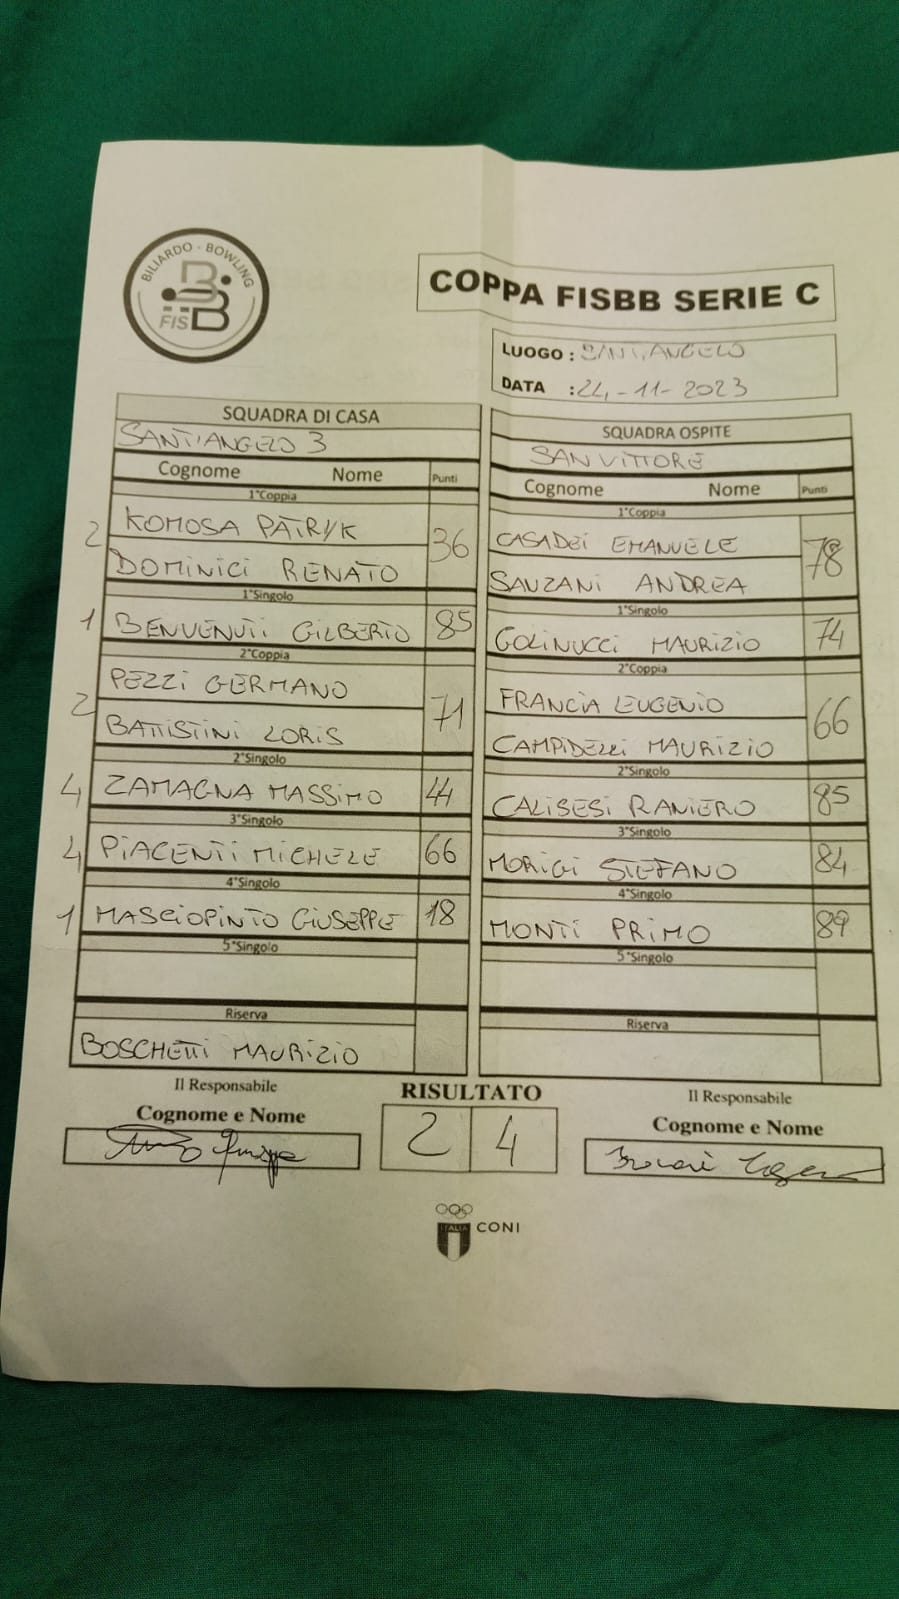 BILIARDO - BOWLING
FISBB
COPPA FISBB SERIE C
LUOGO : SANT'ANGELO
DATA : 24-11-2023
SQUADRA DI CASA
SANT'ANGELO 3
Cognome Nome Punti
1°Coppia
2 KOMOSA PATRYK 36
DOMINICI RENATO
1°Singolo
1 BENVENUTI GILBERTO 85
2°Coppia
2 PEZZI GERMANO 71
BATTISTINI LORIS
2°Singolo
4 ZAMAGNA MASSIMO 44
3°Singolo
4 PIACENTI MICHELE 66
4°Singolo
1 MASCIOPINTO GIUSEPPE 18
5°Singolo
Riserva
BOSCHETTI MAURIZIO
Il Responsabile
Cognome e Nome
SQUADRA OSPITE
SAN VITTORE
Cognome Nome Punti
1°Coppia
CASADEI EMANUELE 78
SANZANI ANDREA
1°Singolo
GOLINUCCI MAURIZIO 74
2°Coppia
FRANCIA EUGENIO 66
CAMPIDELLI MAURIZIO
2°Singolo
CALISESI RANIERO 85
3°Singolo
MORIGI STEFANO 84
4°Singolo
MONTI PRIMO 89
5°Singolo
Riserva
Il Responsabile
Cognome e Nome
RISULTATO
2 4
ITALIA
CONI